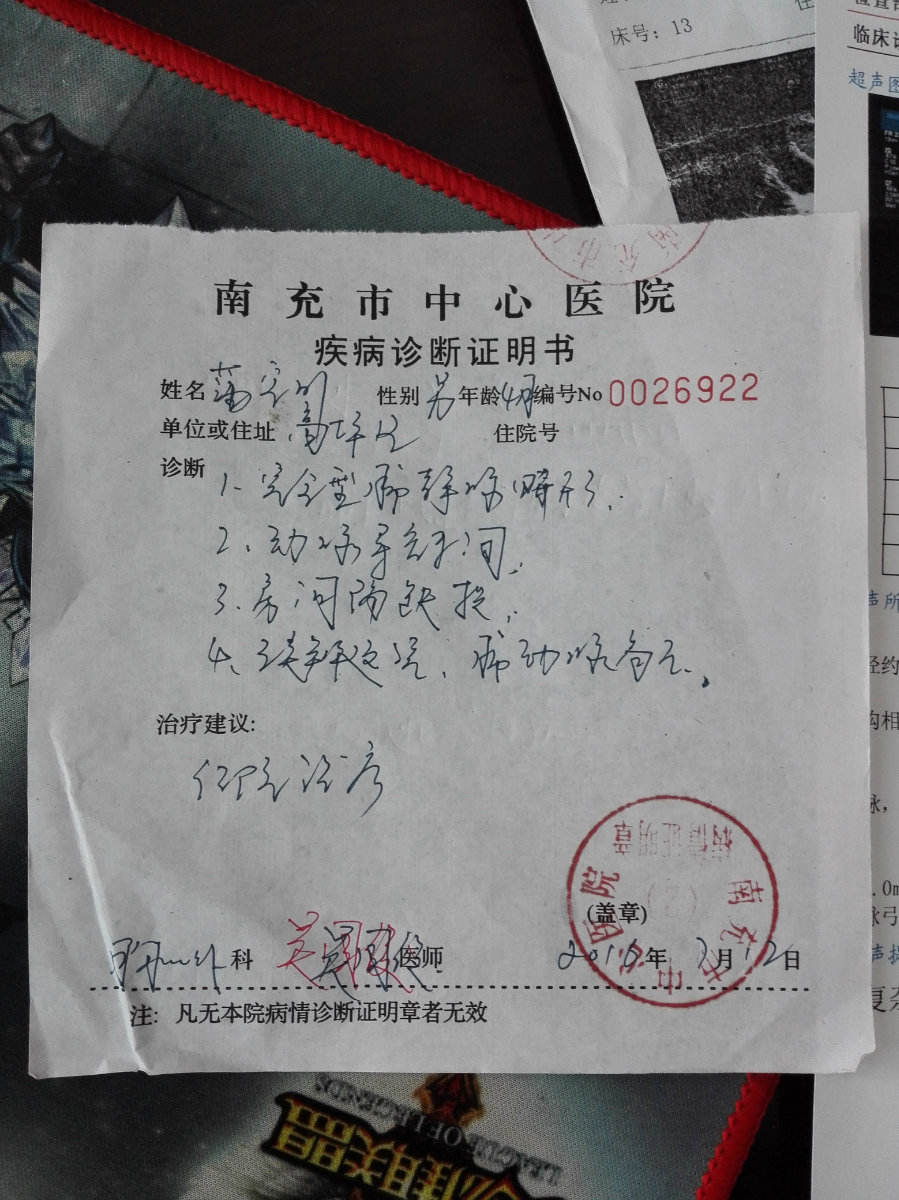 床号：13
临床
超声图
南充市中心医院
疾病诊断证明书
姓名 性别 男 年龄 4月 编号No 0026922
单位或住址 高坪区 住院号
诊断 1、完全型肺静脉畸形、
2、动脉导管未闭、
3、房间隔缺损、
4、肺动脉高压。
治疗建议:
住院治疗
南充市中心医院
病情证明章
(2)
(盖章)
科 医师 2016年 7月12日
注: 凡无本院病情诊断证明章者无效
声所
径约
构相
脉，
.0m
脉弓
声提
复杂
英雄联盟
LEAGUE OF LEGENDS